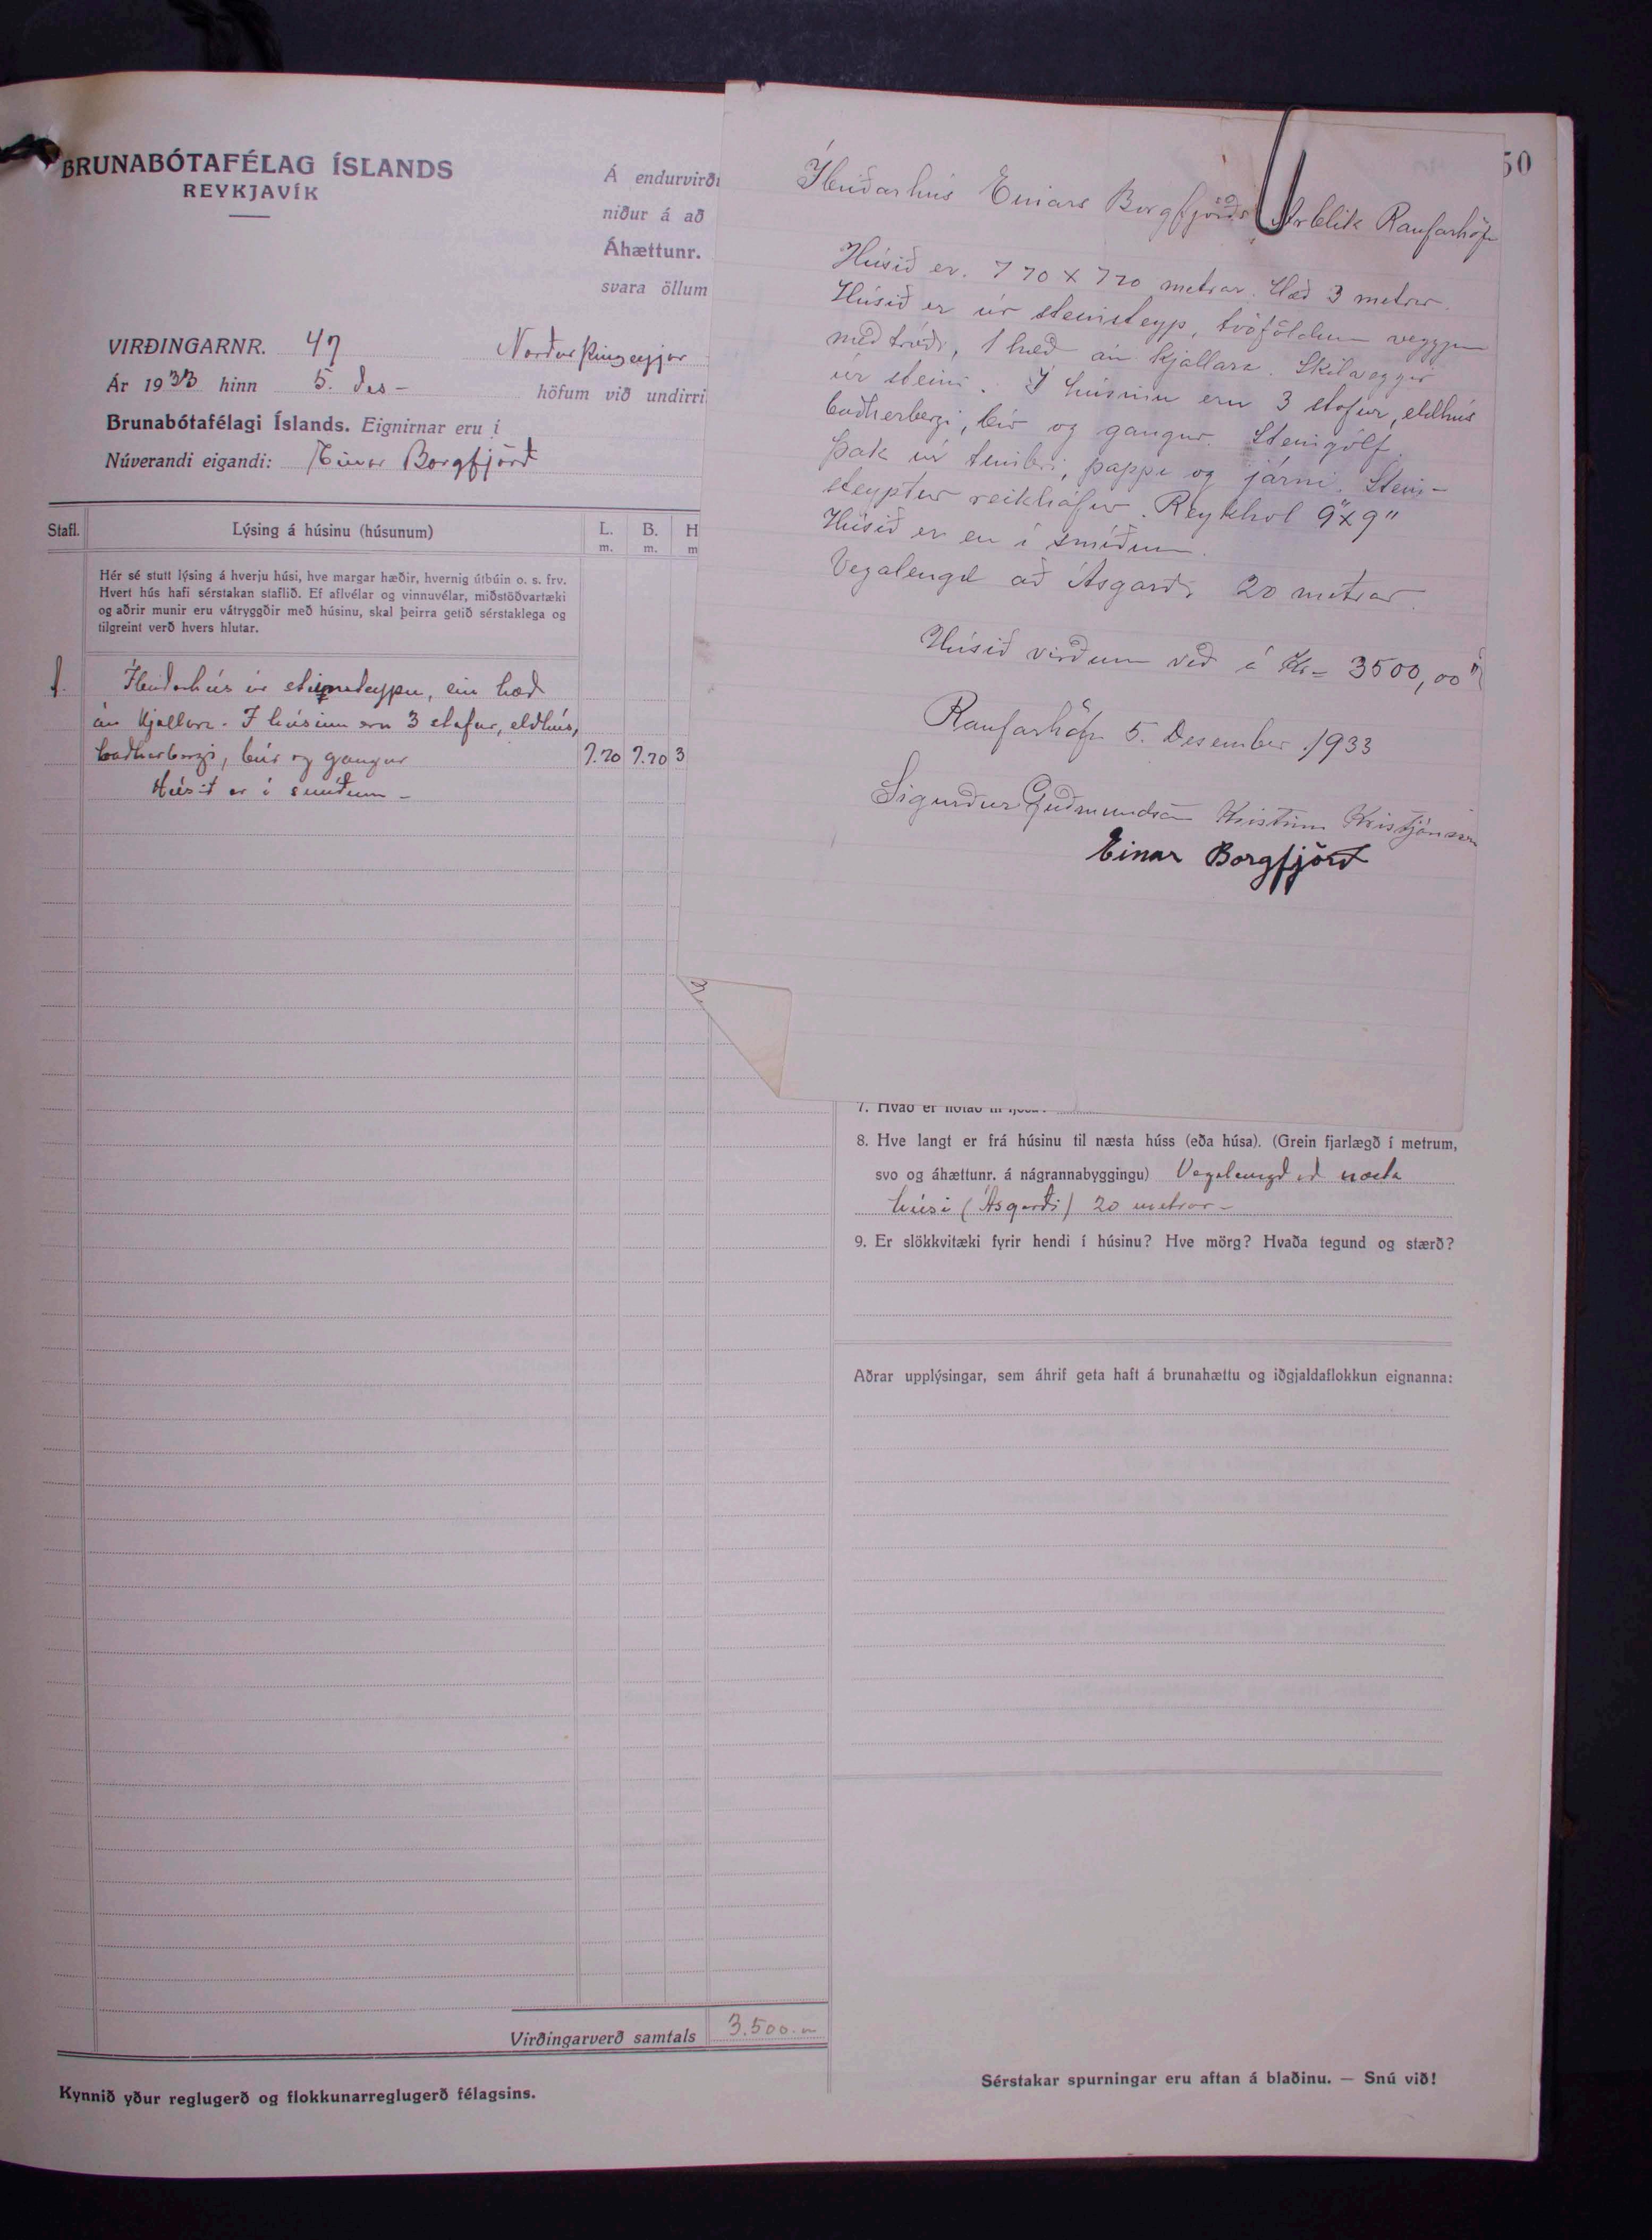 BRUNABÓTAFÉLAG ÍSLANDS
REYKJAVÍK
Á endurvirði
niður á að
Áhættunr.
svara öllum
VIRÐINGARNR. 47 Norður Þingeyjar
Ár 1933 hinn 5. des -
höfum við undirri
Brunabótafélagi Íslands. Eignirnar eru í
Núverandi eigandi: Einar Borgfjörð
Stafl. Lýsing á húsinu (húsunum) L. m. B. m. H m
Hér sé stutt lýsing á hverju húsi, hve margar hæðir, hvernig útbúin o. s. frv.
Hvert hús hafi sérstakan staflið. Ef aflvélar og vinnuvélar, miðstöðvartæki
og aðrir munir eru vátryggðir með húsinu, skal þeirra getið sérstaklega og
tilgreint verð hvers hlutar.
Íbúðarhús úr steinsteypu, ein hæð
án kjallara. Í húsinu eru 3 stofur, eldhús,
baðherbergi, búr og gangur 7.70 7.70 3
Húsið er í smíðum -
Virðingarverð samtals 3.500.-
Kynnið yður reglugerð og flokkunarreglugerð félagsins.
50
Íbúðarhús Einars Borgfjörðs Árblik Raufarhöfn
Húsið er. 7 70 x 7 70 metrar. Hæð 3 metrar.
Húsið er úr steinsteyp, tvöföldum veggjum
með tróði, 1 hæð án kjallara. Skilveggir
úr steini. Í húsinu eru 3 stofur, eldhús
baðherbergi, búr og gangur. Steingólf.
Þak úr timbri, pappa og járni. Stein-
steyptur reikháfur. Reykhol 9"x9"
Húsið er en í smíðum.
Vegalengd að Ásgarði 20 metrar.
Húsið virðum við á Kr- 3500,00
Raufarhöfn 5. Desember 1933
Sigurður Guðmundsson Kristinn Kristjánsson
Einar Borgfjörð
7. Hvað er notað til ljósa?
8. Hve langt er frá húsinu til næsta húss (eða húsa). (Grein fjarlægð í metrum,
svo og áhættunr. á nágrannabyggingu) Vegalengd að næsta
húsi (Ásgarði) 20 metrar -
9. Er slökkvitæki fyrir hendi í húsinu? Hve mörg? Hvaða tegund og stærð?
Aðrar upplýsingar, sem áhrif geta haft á brunahættu og iðgjaldaflokkun eignanna:
Sérstakar spurningar eru aftan á blaðinu. — Snú við!